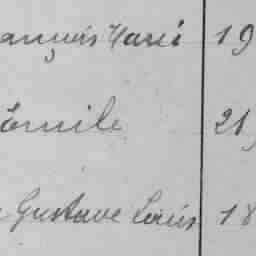 ançois Marie 19
Emile 21
Gustave Louis 18